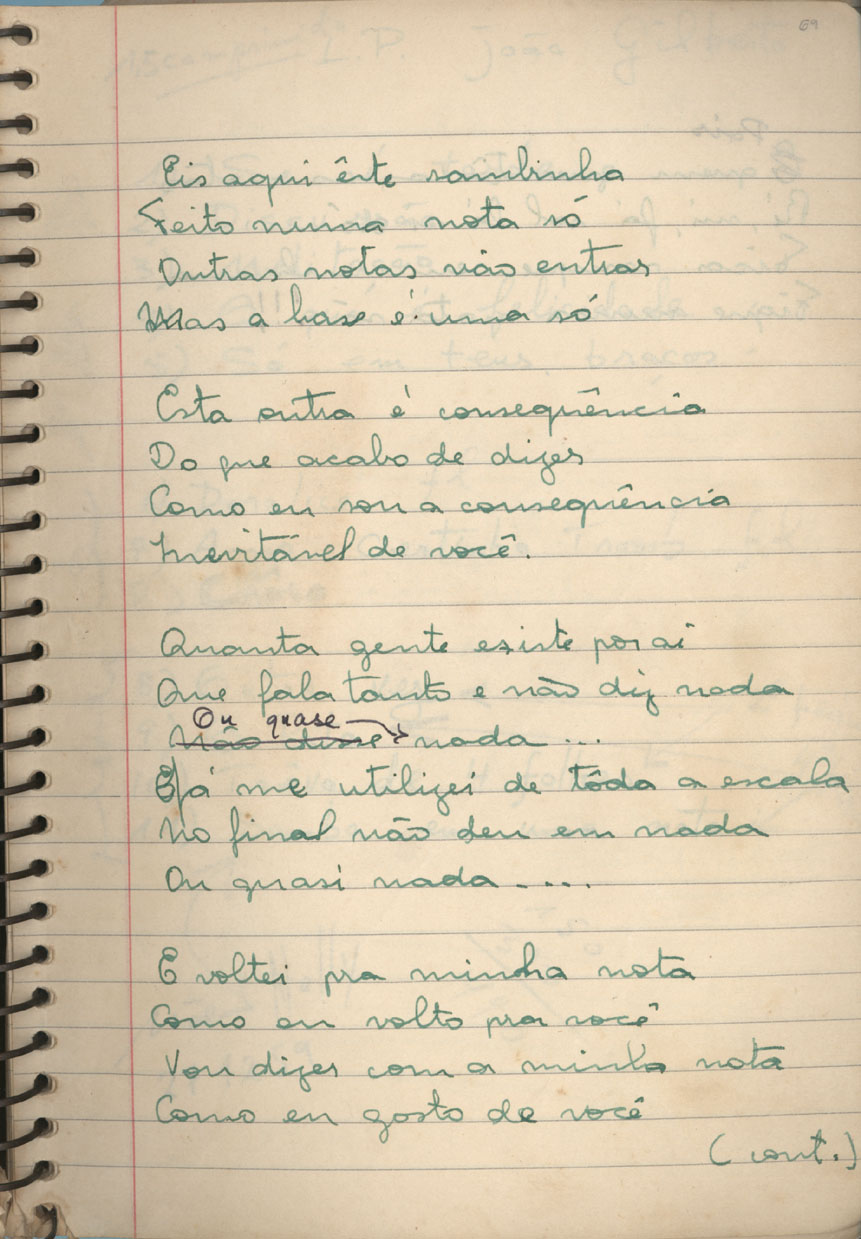 69
Eis aqui êste sambinha
Feito numa nota só
Outras notas vão entrar
Mas a base é uma só
Esta outra é consequência
Do que acabo de dizer
Como eu sou a consequência
Inevitável de você.
Quanta gente existe por aí
Que fala tanto e não diz nada
Ou quase
Não disse nada ...
E já me utilizei de tôda a escala
No final não deu em nada
Ou quasi nada ....
E voltei pra minha nota
Como eu volto pra você
Vou dizer com a minha nota
Como eu gosto de você
(cont.)